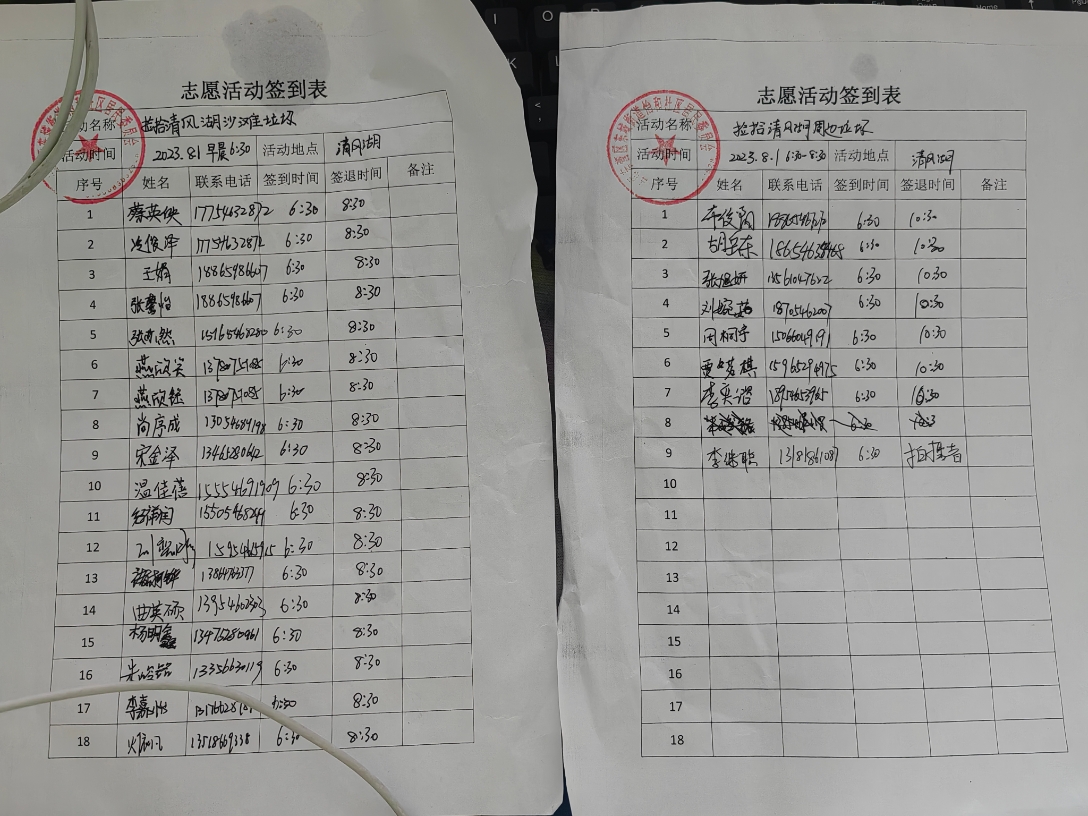 志愿活动签到表
活动名称 捡拾清风湖沙滩垃圾
活动时间 2023.8.1 早晨6:30 活动地点 清风湖
序号 姓名 联系电话 签到时间 签退时间 备注
1 蔡英侠 17754632872 6:30 8:30
2 冼俊泽 17754632872 6:30 8:30
3 王娟 18865986607 6:30 8:30
4 张馨怡 18865986607 6:30 8:30
5 15165468280 6:30 8:30
6 燕欣笑 6:30 8:30
7 燕欣钰 6:30 8:30
8 尚序成 13054684198 6:30 8:30
9 宋金泽 13465280642 6:30 8:30
10 温佳蓓 15554691909 6:30 8:30
11 15505468249 6:30 8:30
12 15954665915 6:30 8:30
13 6:30 8:30
14 曲英硕 13954602303 6:30 8:30
15 杨明鑫 13476280961 6:30 8:30
16 13356630119 6:30 8:30
17 李嘉 6:30 8:30
18 13518669338 6:30 8:30
志愿活动签到表
活动名称 捡拾清风湖周边垃圾
活动时间 2023.8.1 6:30-8:30 活动地点 清风湖
序号 姓名 联系电话 签到时间 签退时间 备注
1 6:30 10:30
2 胡安东 6:30 10:30
3 张煜妍 13561047622 6:30 10:30
4 刘婉茹 18705462007 6:30 10:30
5 周柯宇 15066049191 6:30 10:30
6 15965294975 6:30 10:30
7 李奕诺 18954653965 6:30 10:30
8
9 13181861087 6:30 拍摄者
10
11
12
13
14
15
16
17
18